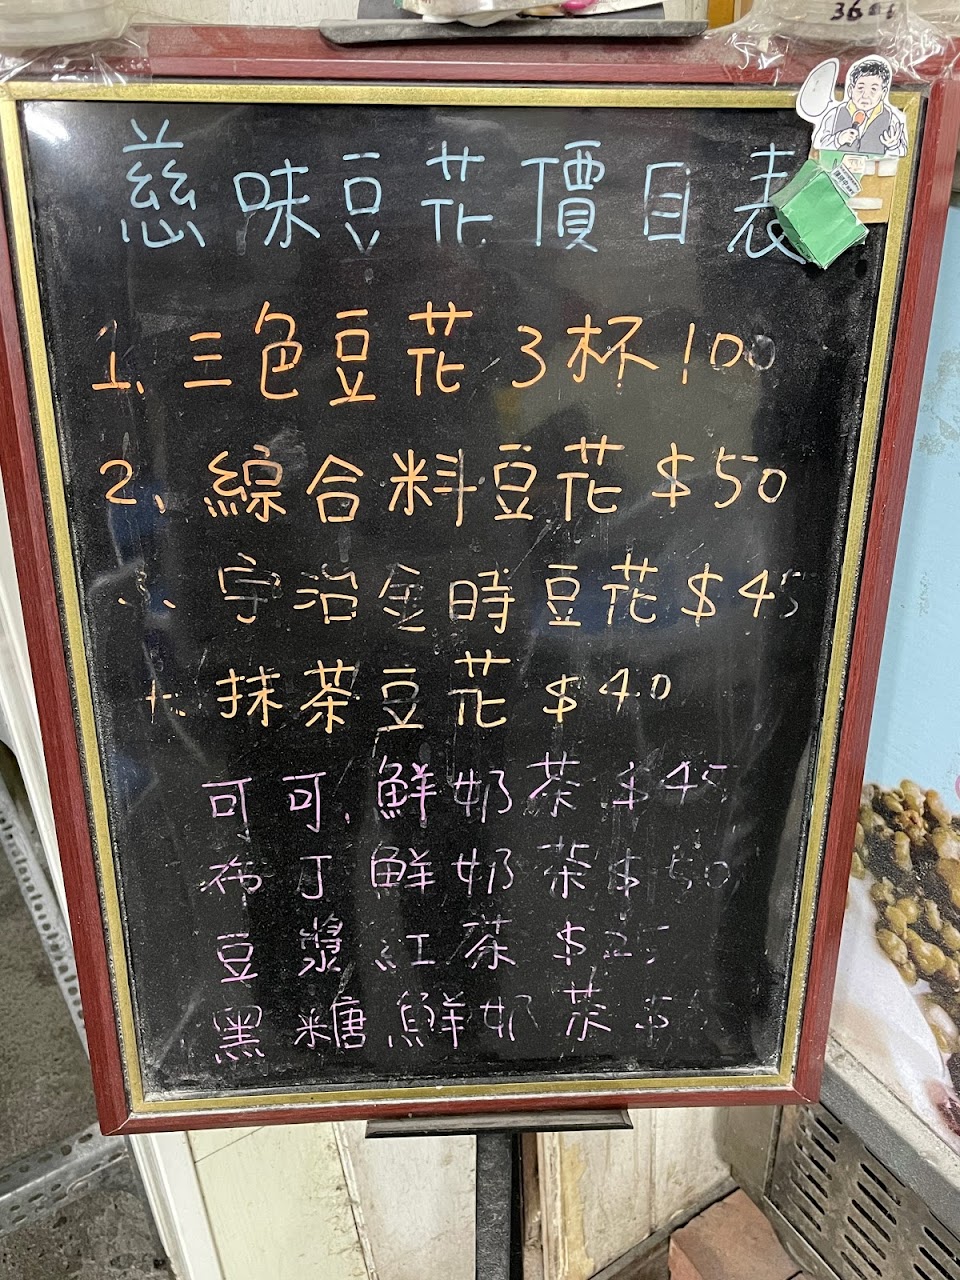 慈味豆花價目表
1、三色豆花3杯100
2、綜合料豆花$50
宇治金時豆花$45
抹茶豆花$40
可可鮮奶茶$45
布丁鮮奶茶$50
豆漿紅茶$25
黑糖鮮奶茶$